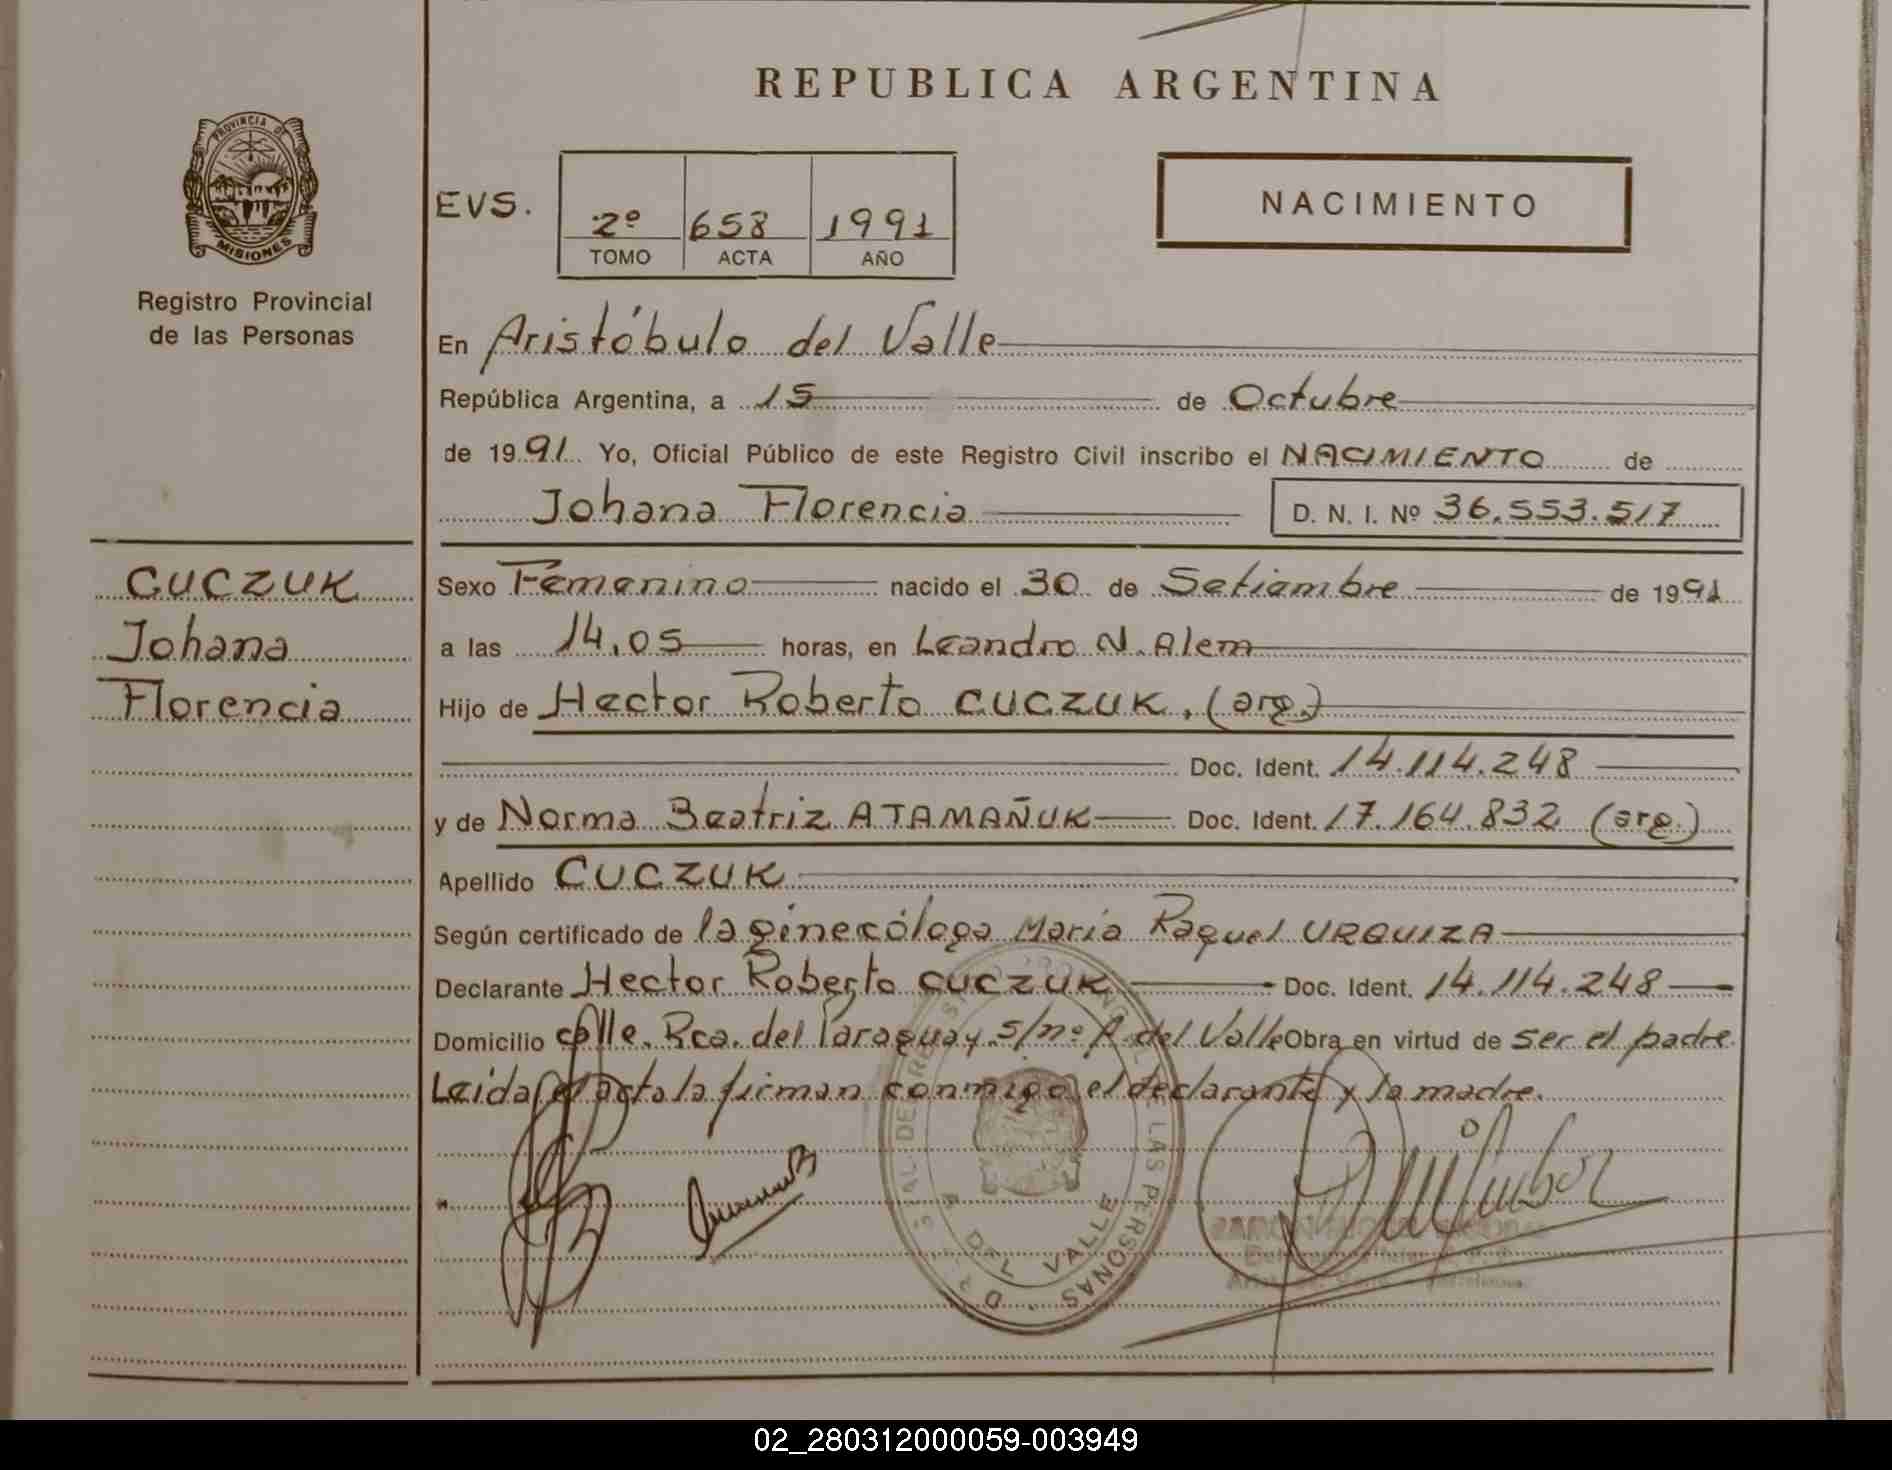 REPUBLICA ARGENTINA
PROVINCIA DE
MISIONES
Registro Provincial
de las Personas
EVS.
2º 658 1991
TOMO ACTA AÑO
NACIMIENTO
En Aristóbulo del Valle
República Argentina, a 15 de Octubre
de 1991 Yo, Oficial Público de este Registro Civil inscribo el NACIMIENTO de
Johana Florencia D. N. I. Nº 36.553.517
CUCZUK
Johana
Florencia
Sexo Femenino nacido el 30 de Setiembre de 1991
a las 14,05 horas, en Leandro N. Alem
Hijo de Hector Roberto CUCZUK, (arg.)
Doc. Ident. 14.114.248
y de Norma Beatriz ATAMAÑUK Doc. Ident. 17.164.832 (arg.)
Apellido CUCZUK
Según certificado de la ginecóloga María Raquel URQUIZA
Declarante Hector Roberto CUCZUK Doc. Ident. 14.114.248
Domicilio calle. Rca. del Paraguay s/nº A. del Valle Obra en virtud de ser el padre
Leida el acta la firman conmigo el declarante y la madre.
DE LAS PERSONAS
DEL VALLE
02_280312000059-003949